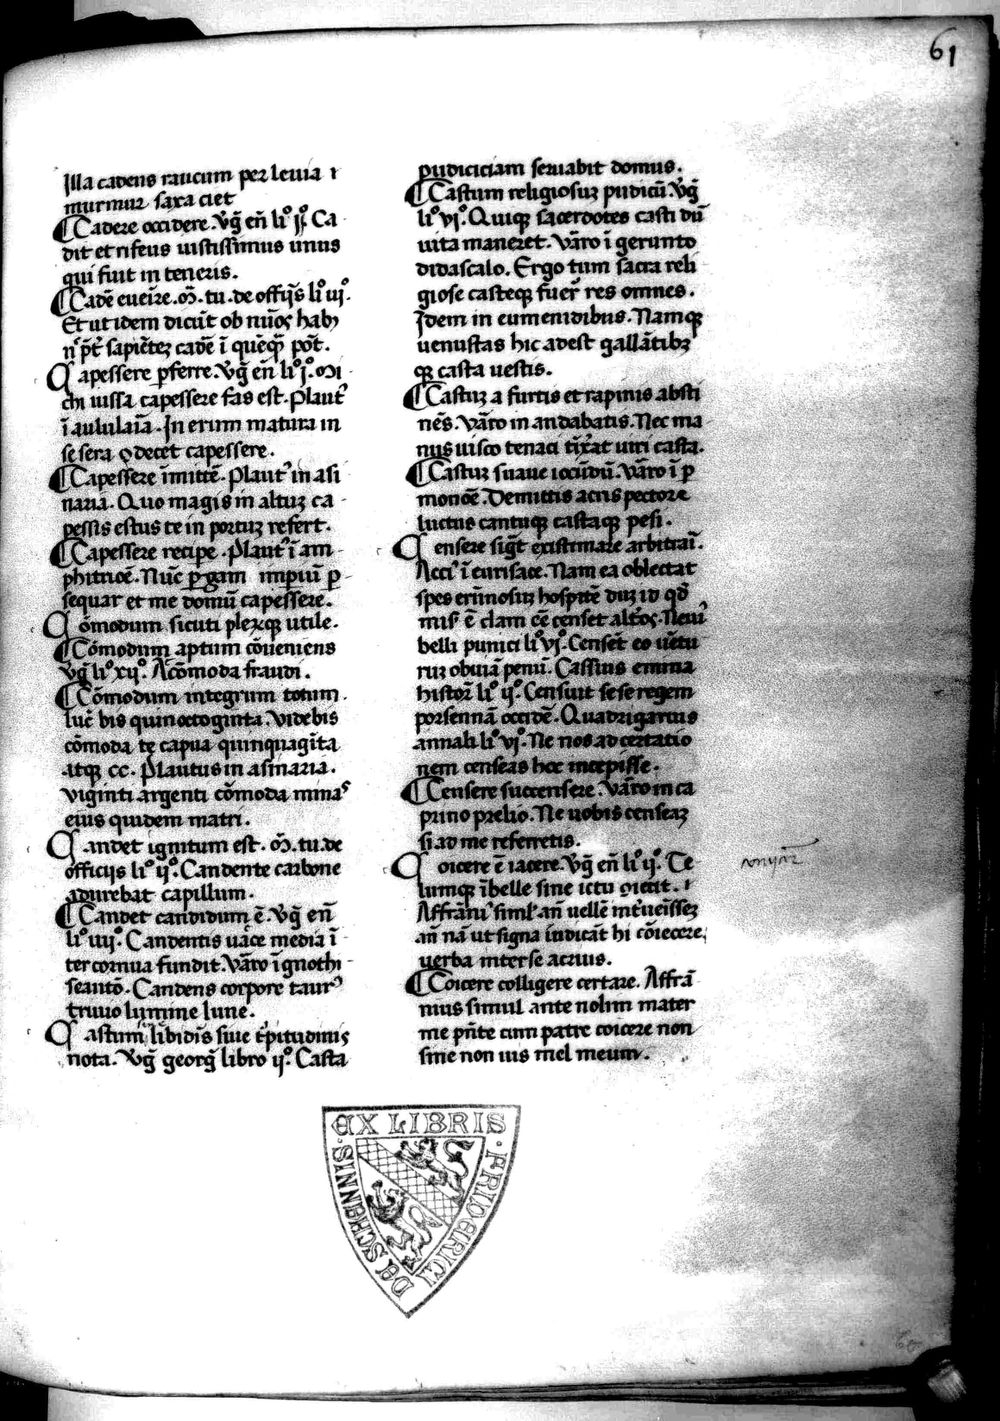 61
Illa cadens raucum per levia ⁊
murmur saxa ciet
¶ Cadere occidere. Vg̃ eñ liº ijº. Ca
dit et rifeus iustissimus unus
qui fuit in teucris.
¶ Cadẽ eueire. M̃. tu. de offijs liº iijº.
Et ut idem dicũt ob nũos hab
sapiẽtez cadẽ ĩ quẽq̃ põt.
Capessere pferre. Vg̃ eñ liº jº. Mi
chi iussa capessere fas est. Plaut᾽
ĩ aululaĩa. In erum matura in
se sera decet capessere.
¶ Capessere ĩmittẽ. Plaut᾽ in asi
naria. Quo magis in altuz ca
pessis estus te in portuz refert.
¶ Capessere recipe. Plaut᾽ ĩ am
phitrioẽ. Nũc pgam impiũ p
sequar et me domũ capessere.
Cõmodum sicuti plerq utile.
¶ Cõmodum aptum cõueniens
Vg̃ liº xijº. Acõmoda fraudi.
¶ Cõmodum integrum totum.
lucĩ bis quinoctoginta. Videbis
cõmoda te capua quinquagĩta
atq cc. Plautus in asinaria.
viginti argenti cõmoda minas
eius quidem matri.
Candet ignitum est. M̃. tu. de
officijs liº ijº. Candente carbone
adurebat capillum.
¶ Candet candidum ẽ. Vg̃ eñ
liº iiijº. Candentis uacce media ĩ
ter cornua fundit. Varo ĩ gnothi
seantõ. Candens corpore taur᾽
triuio lumine lune.
Castum libidĩs siue tpitudinis
nota. Vg̃ georg̃ libro ijº. Casta
pudiciciam seruabit domus.
¶ Castum religiosuz pudicũ. Vg̃
liº vjº. Quiq sacerdotes casti dũ
uita maneret. Varo ĩ gerunto
didascalo. Ergo tum sacra reli
giose casteq fuer̃ res omnes.
Idem in eumenidibus. Namq
uenustas hic adest gallãtibz
q casta uestis.
¶ Castuz a furtis et rapinis absti
nẽs. Varo in andabatis. Nec ma
nus uisco tenaci tĩxat uiri casta.
¶ Castuz suaue iocũdũ. Varo ĩ p
monoẽ. Demittis acris pectore
luctus cantuq castaq pesi.
Censere sigt̃ existimare arbitrãi.
Acci᾽ ĩ eurisace. Nam ea oblectat
spes erũnosuz hospitẽ duz id qd̃
mis᾽ ẽ clam cẽ censet altos. Neui᾽
belli punici liº vjº. Censẽt eo uẽtu
ruz obuiã penũ. Cassius emina
histor̃ liº ijº. Censuit sese regem
porsennã occidẽ. Quadrigarius
annali liº vjº. Ne nos ad certatio
nem censeas hoc incepisse.
¶ Censere succensere. Varo in ca
prino prelio. Ne uobis censeaz
si ad me referretis.
Coicere ẽ iacere. Vg̃ eñ liº ijº. Te
lumq ĩbelle sine ictu ꝯiecit. ⁊
Affrãni᾽ siml᾽ añ uellẽ mt̃ ueĩssez
añ nã ut signa indicãt hi cõiecere,
uerba inter se acrius.
¶ Coicere colligere certare. Affrã
nius simul ante nolim mater
me pñte cum patre coicere non
sine non uis mel meum.
EX LIBRIS · FRIDERICI DE SCHENNIS ·